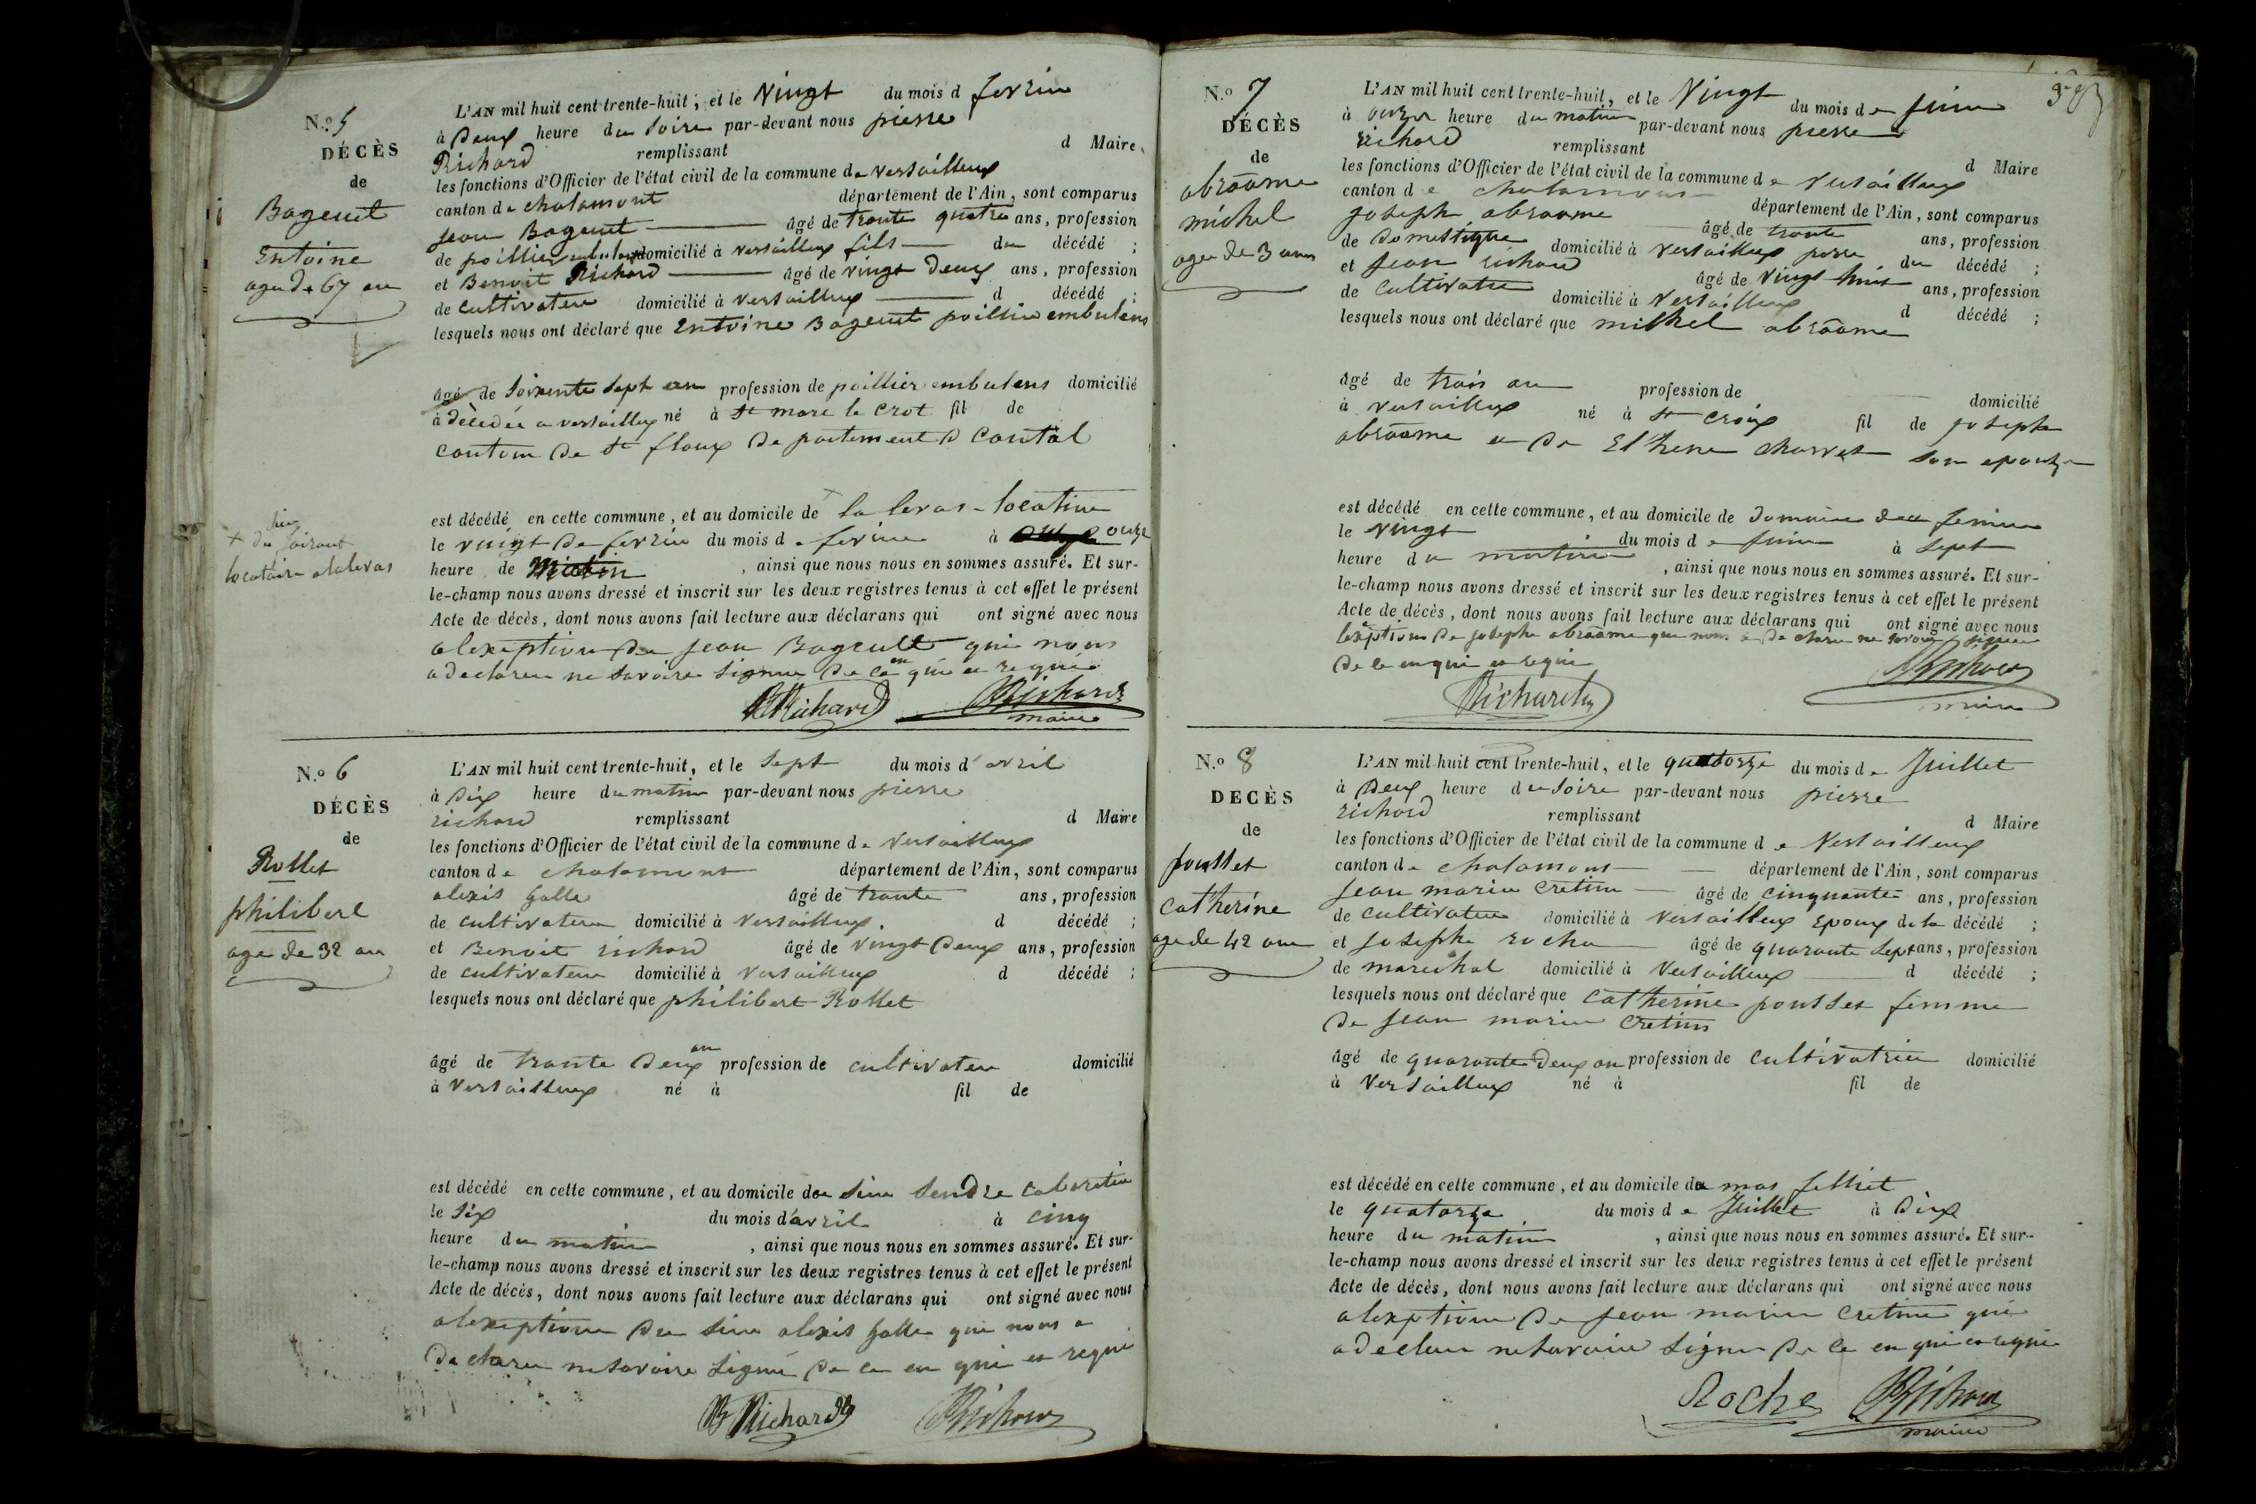 N.º 5
DÉCÈS
de
Bageult
Entoine
age de 67 an
L'AN mil huit cent trente-huit, et le Vingt du mois d fevrier
à Deux heure du Soire par-devant nous pierre
Richard remplissant d Maire
les fonctions d'Officier de l'état civil de la commune de Versailleux
canton de chalamont département de l'Ain, sont comparus
Jean Bageult âgé de trante quatre ans, profession
de poillier domicilié à Versailleux fils du décédé ;
et Benoit Richard âgé de vingt Deux ans, profession
de Cultivateur domicilié à Versailleux d décédé ;
lesquels nous ont déclaré que Entoine Bageult poillier embulens
âgé de Soixente Sept an profession de poillier embulens domicilié
à décédée a versailleux né à St marc le crot fil de
contom de St floux De partement D Cantal
est décédé en cette commune, et au domicile de + la levas-locatire
le vingt De fevrier du mois de fevrier à onze
heure de Matin , ainsi que nous nous en sommes assuré. Et sur-
le-champ nous avons dressé et inscrit sur les deux registres tenus à cet effet le présent
Acte de décès, dont nous avons fait lecture aux déclarans qui ont signé avec nous
alexeption de Jean Bageult qui nous
a declarer ne Savoire Signer De ce en qui et requi
+ du Sieur
locataire alalevas
BRichard PRichard
maire
N.º 6
DÉCÈS
de
Rollet
philibert
age de 32 an
L'AN mil huit cent trente-huit, et le Sept du mois d'avril
à Dix heure du matin par-devant nous pierre
richard remplissant d Maire
les fonctions d'Officier de l'état civil de la commune de Versailleux
canton de chalamont département de l'Ain, sont comparus
alexis galle âgé de trante ans, profession
de cultivateur domicilié à Versailleux. d décédé ;
et Benoit richard âgé de Vingt Deux ans, profession
de cultivateur domicilié à Versailleux d décédé ;
lesquels nous ont déclaré que philibert Rollet
âgé de trante Deux an profession de cultivateur domicilié
à Versailleux né à fil de
est décédé en cette commune, et au domicile du Sieur Sendre cabaretier
le Six du mois d'avril à cinq
heure du matin , ainsi que nous nous en sommes assuré. Et sur-
le-champ nous avons dressé et inscrit sur les deux registres tenus à cet effet le présent
Acte de décès, dont nous avons fait lecture aux déclarans qui ont signé avec nous
alexeption du Sieur alexis galle que nous a
De clarer ne Savoire Signé De ce en qui et requi
B Richard PRichard
N.º 7
DÉCÈS
de
abraome
michel
age de 3 ans
L'AN mil huit cent trente-huit, et le Vingt du mois de Juin
à onze heure du matin par-devant nous pierre
richard remplissant d Maire
les fonctions d'Officier de l'état civil de la commune de Versailleux
canton de chalamont département de l'Ain, sont comparus
Joseph abraome âgé de trante ans, profession
de Domestique domicilié à Versailleux perre du décédé ;
et Jean richard âgé de Vingt huit ans, profession
de Cultivateur domicilié à Versailleux d décédé ;
lesquels nous ont déclaré que michel abraome
âgé de trois an profession de domicilié
à Versailleux né à St croix fil de Joseph
abraome et de Elthene charvet Son epouse
est décédé en cette commune, et au domicile de Domaine
le Vingt du mois de Juin à Sept
heure du matin , ainsi que nous nous en sommes assuré. Et sur-
le-champ nous avons dressé et inscrit sur les deux registres tenus à cet effet le présent
Acte de décès, dont nous avons fait lecture aux déclarans qui ont signé avec nous
lexeption De Josephe abraome que nous a De clarer ne Savoir Signer
De ce en qui et requi
Richard PRichard
maire
N.º 8
DECÈS
de
pousset
catherine
age de 42 ans
L'AN mil huit cent trente-huit, et le quatorze du mois de Juillet
à Deux heure du Soire par-devant nous pierre
richard remplissant d Maire
les fonctions d'Officier de l'état civil de la commune de Versailleux
canton de chalamont département de l'Ain, sont comparus
Jean marie cretin âgé de cinquante ans, profession
de cultivateur domicilié à Versailleux Epoux de la décédé ;
et Josephe roche âgé de quarante Sept ans, profession
de marechal domicilié à Versailleux d décédé ;
lesquels nous ont déclaré que catherine pousset femme
De Jean marie cretin
âgé de quarante Deux an profession de cultivatrice domicilié
à Versailleux né à fil de
est décédé en cette commune, et au domicile du mas felliet
le quatorze du mois de Juillet à Dix
heure du matin , ainsi que nous nous en sommes assuré. Et sur-
le-champ nous avons dressé et inscrit sur les deux registres tenus à cet effet le présent
Acte de décès, dont nous avons fait lecture aux déclarans qui ont signé avec nous
alexption De Jean marie cretin qui
a declarer ne Savoire Signer De ce en qui et requi
Roche PRichard
maire